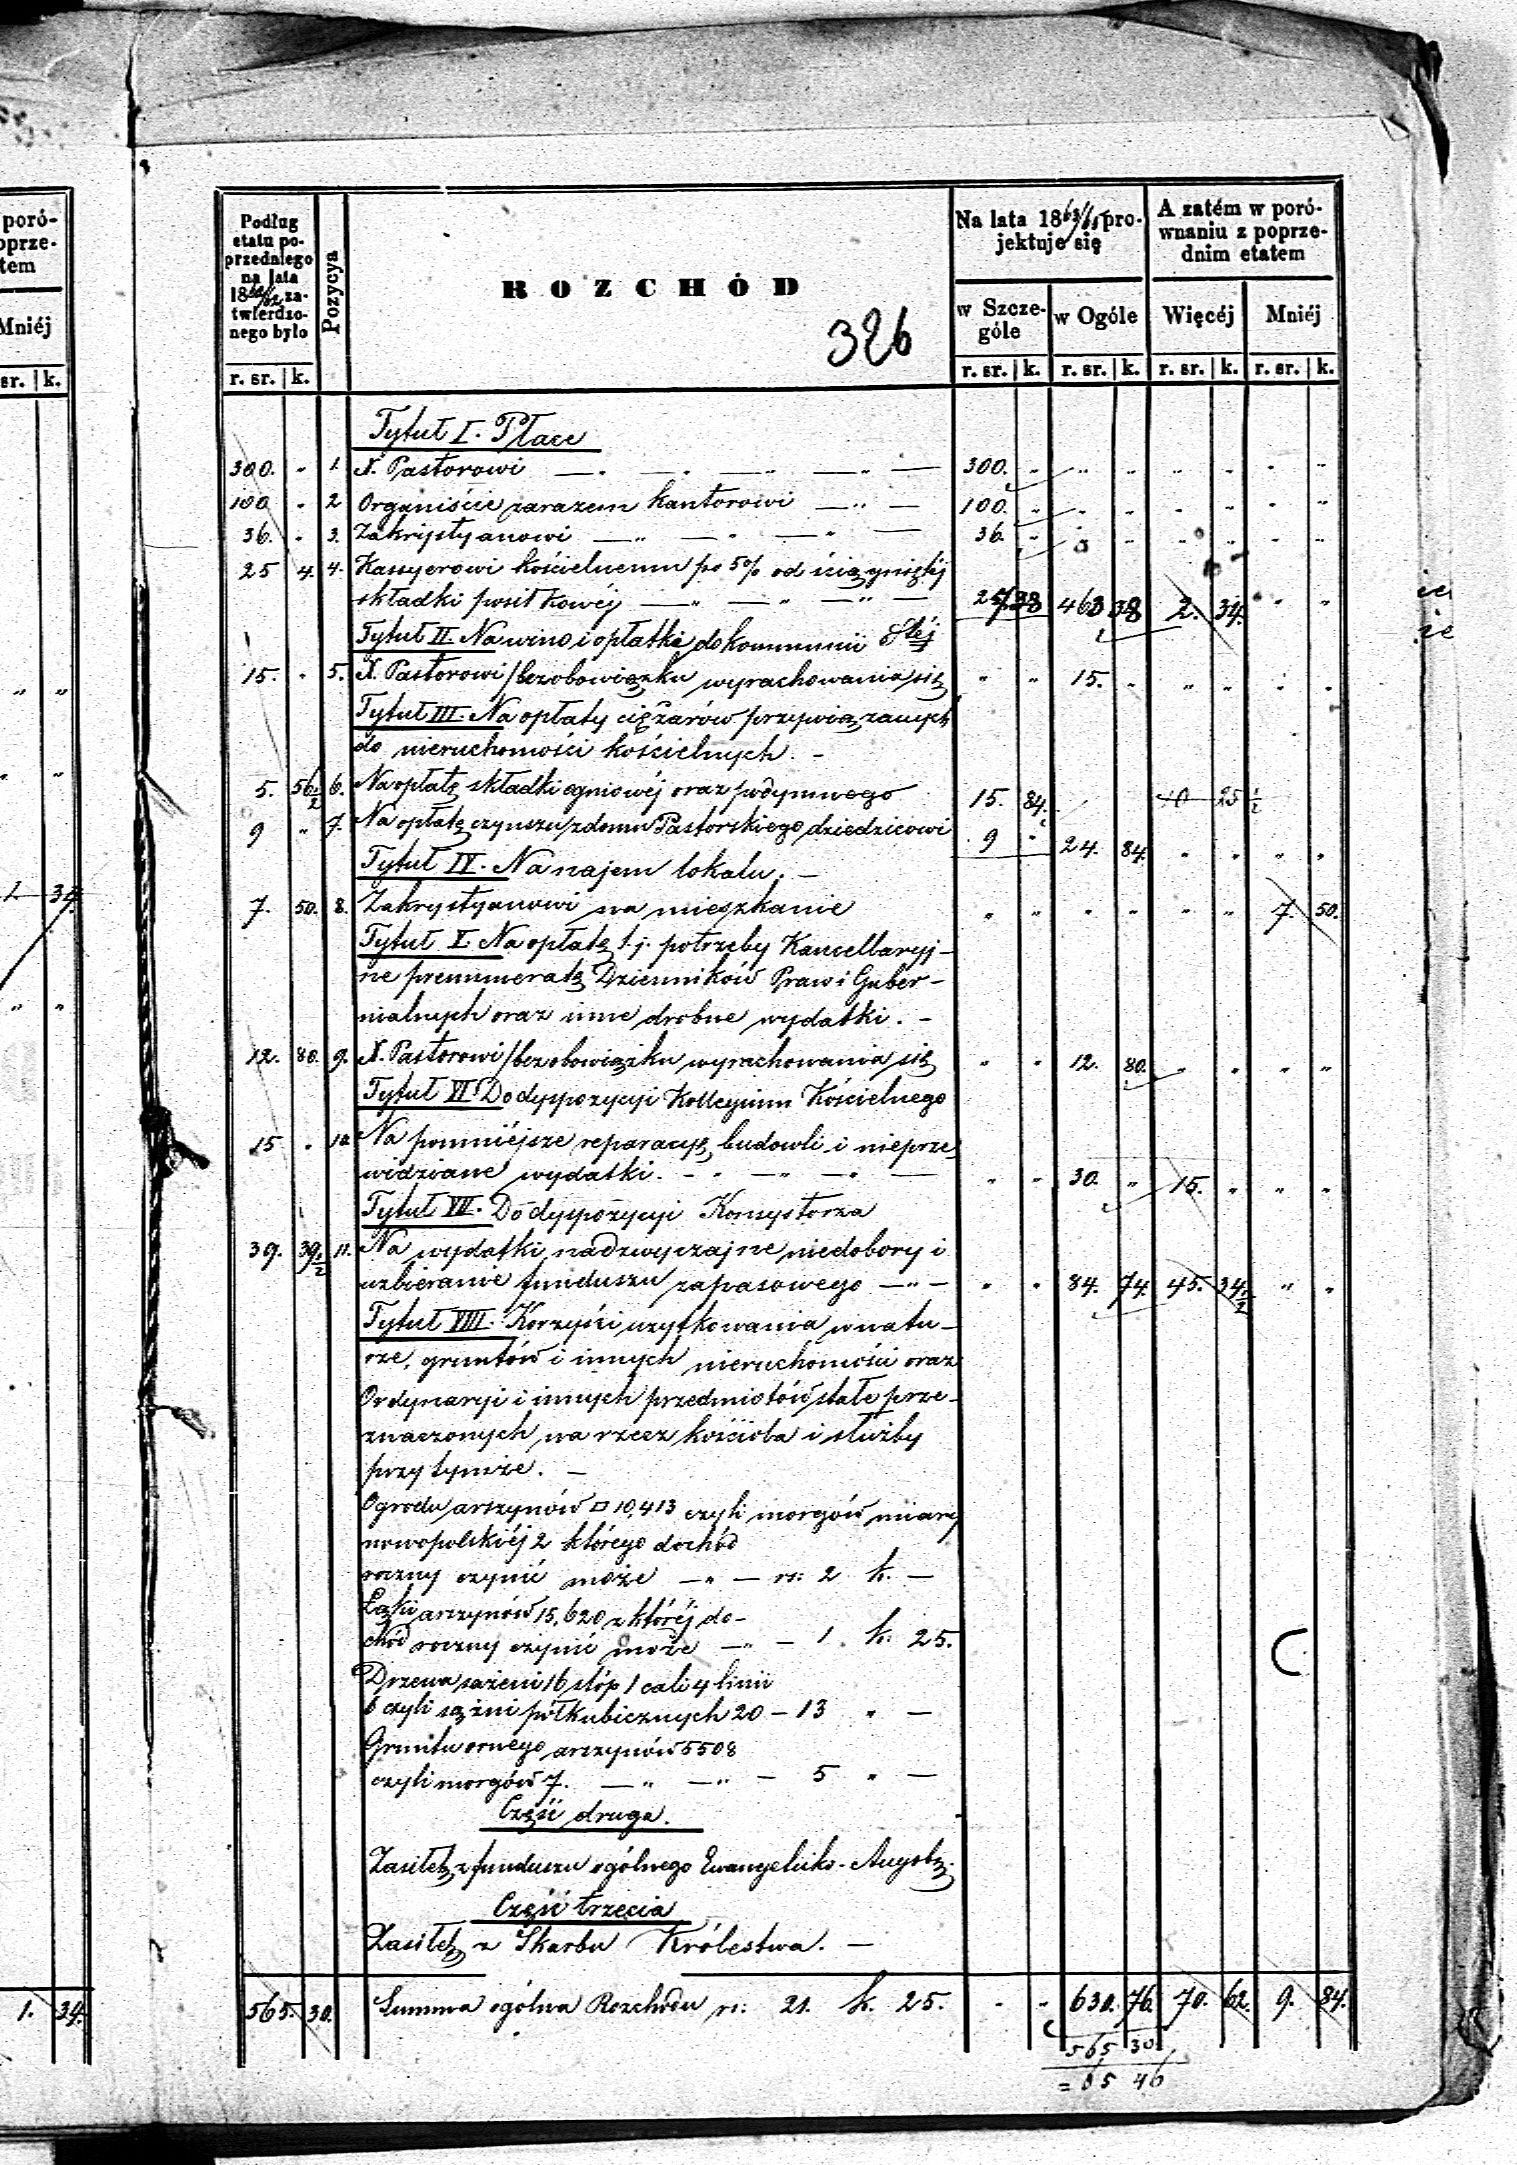 poró-
oprze-
tem
Mniéj
sr. k.
1 34.
1. 34.
Podług etatu po-przedniego na lata 1860/62 za-twierdzo-nego było
Pozycya
ROZCHÓD
326
Na lata 1863/65 pro-jektuje się
A zatém w poró-wnaniu z poprze-dnim etatem
w Szcze-góle w Ogóle Więcéj Mniéj
r. sr. k. r. sr. k. r. sr. k. r. sr. k. r. sr. k.
Tytuł I. Płace
300. " 1. X. Pastorowi — " — " — " — " — 300. " " " " " " "
100 " 2 Organiście zarazem kantorowi — " — 100. " " " " " " "
36. " 3. Zakrystyanowi — " — " — " — 36. " " " " " " "
25 4. 4. Kassyerowi kościelnemu po 5% od ściągniętéj
składki posiłkowéj — " — " — " — 27 38 463 38 2. 34. " "
Tytuł II. Na wino i opłatki do kommunii Stéj
15. " 5. X. Pastorowi /bez obowiązku wyrachowania się " " 15. " " " " "
Tytuł III. Na opłaty ciężarów przywiązanych
do nieruchomości kościelnych. —
5. 56½ 6. Na opłatę składki ogniowéj oraz podymnego 15. 84. 10 25½
9 " 7. Na opłatę czynszu z domu Pastorskiego dziedzicowi 9 " 24. 84. " " " "
Tytuł IV. Na najem lokalu. —
7. 50. 8. Zakrystyanowi na mieszkanie " " " " " " 7. 50.
Tytuł V. Na opłatę t.j. potrzeby Kancellaryj-
ne prenumeratę Dzienników Praw i Guber-
nialnych oraz inne drobne wydatki. —
12. 80. 9. X. Pastorowi /bez obowiązku wyrachowania się " " 12. 80. " " " "
Tytuł VI Do dyspozycyi Kollegium Kościelnego
15 " 10. Na pomniéjsze reparacye budowli i nieprze-
widziane wydatki. — " — " — " — " " 30. " 15. " " "
Tytuł VII. Do dyspozycyi Konsystorza
39. 39½ 11. Na wydatki nadzwyczajne niedobory i
uzbieranie funduszu zapasowego — " — " " 84. 74. 45. 34½ " "
Tytuł VIII. Korzyści użytkowania w natu-
rze, gruntów i innych nieruchomości oraz
Ordynaryi i innych przedmiotów stale prze-
znaczonych na rzecz kościoła i służby
przy tymże. —
Ogrodu arszynów □ 10,413 czyli morgów miary
nowopolskiéj 2 którego dochód
roczny czynić może — " — rs. 2 k. —
Łąki arszynów 15,620 z któréj do-
chód roczny czynić może — " — 1. k. 25.
Drzewa sażeni 16 stóp 1 cali 4 linii
6 czyli sążni półkubicznych 20 — 13 " —
Gruntu ornego arszynów 5508
czyli morgów 7. — " — " — 5 " —
Część druga.
Zasiłek z funduszu ogólnego Ewangelicko-Augsb.
Część trzecia
Zasiłek z Skarbu Królestwa. —
565. 30. Summa ogólna Rozchodu rs. 21. k. 25. " " 630. 76. 70. 62. 9. 84.
565 30
= 65 46